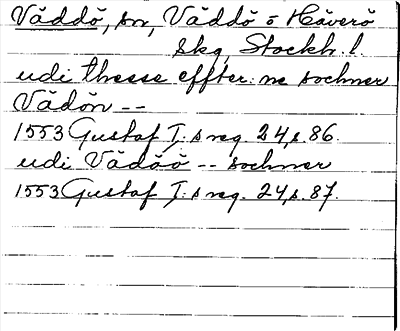 Väddö, sn, Väddö o Häverö
skg, Stockh. l.
udi thesse effter: ne sochner
Vädön --
1553 Gustaf I:s reg. 24, s. 86.
udi Vädöö -- sochner
1553 Gustaf I:s reg. 24, s. 87.